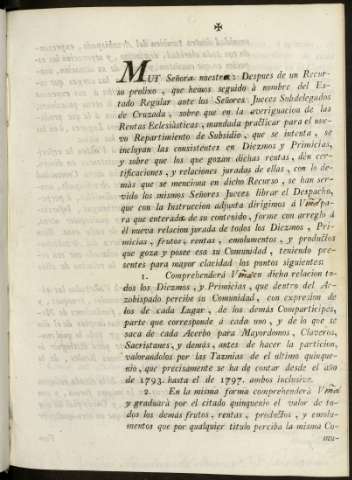 ✠
MUY Señora nuestra: Despues de un Recur-
so prolixo, que hemos seguido à nombre del Es-
tado Regular ante los Señores Jueces Subdelegados
de Cruzada, sobre que en la averiguacion de las
Rentas Eclesiàsticas, mandada practicar para el nue-
vo Repartimiento de Subsidio, que se intenta, se
incluyan las consistentes en Diezmos y Primicias,
y sobre que los que gozan dichas rentas, dèn cer-
tificaciones, y relaciones juradas de ellas, con lo de-
màs que se menciona en dicho Recurso, se han ser-
vido los mismos Señores Jueces librar el Despacho,
que con la Instruccion adjunta dirigimos à Vmd pa-
ra que enterada de su contenido, forme con arreglo à
èl nueva relacion jurada de todos los Diezmos, Pri-
micias, frutos, rentas, emolumentos, y productos
que goza y posee esa su Comunidad, teniendo pre-
sentes para mayor claridad los puntos siguientes:
1. Comprehenderá Vmd en dicha relacion to-
dos los Diezmos, y Primicias, que dentro del Ar-
zobispado percibe su Comunidad, con expresion de
los de cada Lugar, de los demàs Comparticipes,
parte que corresponde à cada uno, y de lo que se
saca de cada Acerbo para Mayordomos, Claveros,
Sacristanes, y demàs, antes de hacer la particion,
valorandolos por las Tazmias del ultimo quinque-
nio, que precisamente se ha de contar desde el año
de 1793. hasta el de 1797. ambos inclusive.
2. En la misma forma comprehenderà Vmd
y graduarà por el citado quinquenio el valor de to-
dos los demàs frutos, rentas, productos, y emolu-
mentos que por qualquier titulo perciba la misma Co-
mu-